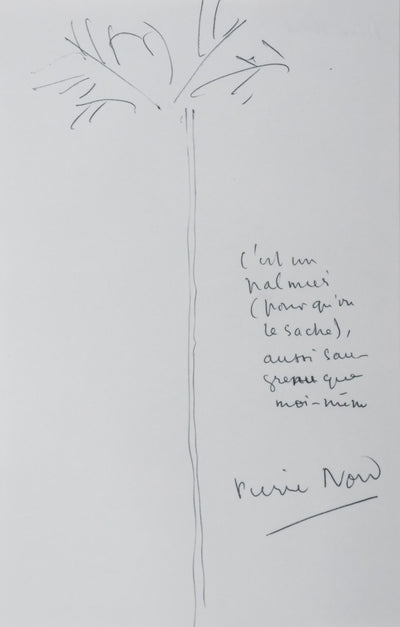 C'est un
palmier
(pour qu'on
le sache),
aussi sau-
grenu que
moi-même
Pierre Nora